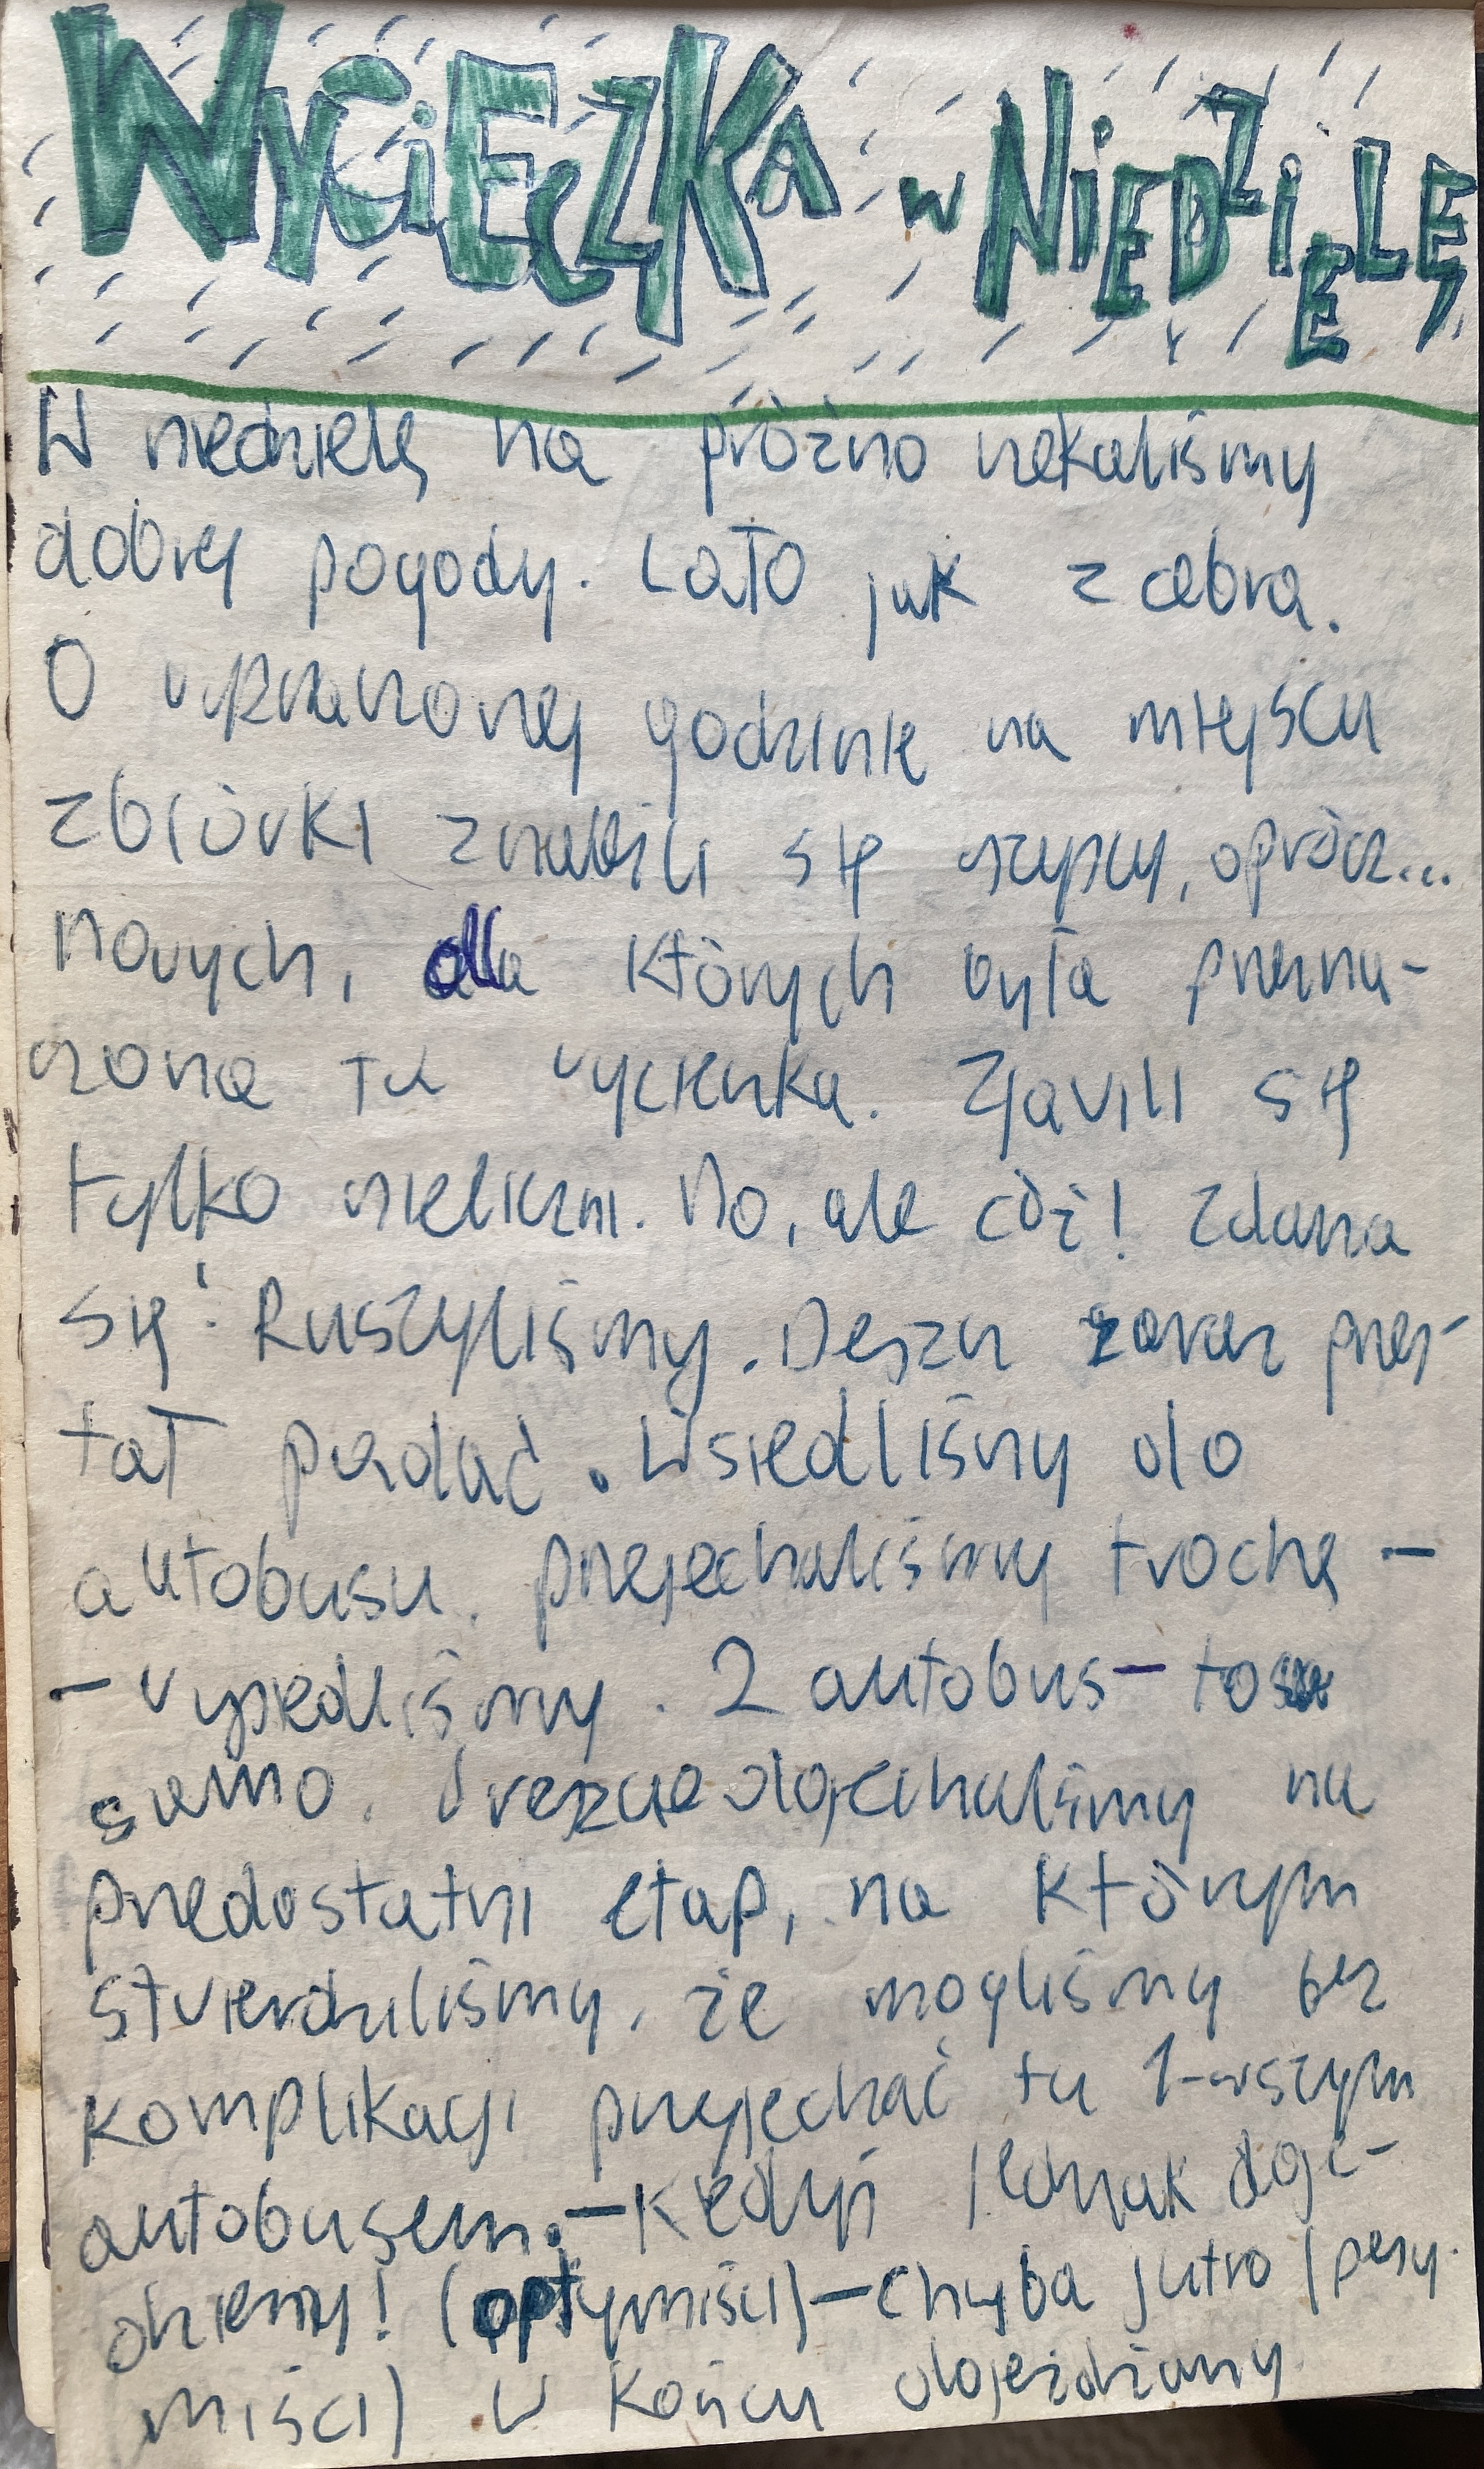 WYCiECZKA w NiEDZiELĘ
W niedzielę na próżno czekaliśmy
dobrej pogody. Lało jak z cebra.
O wyznaczonej godzinie na miejscu
zbiórki znaleźli się wszyscy, oprócz...
nowych, dla których była przezna-
czona ta wycieczka. Zjawili się
tylko nieliczni. No, ale cóż! Zdarza
się! Ruszyliśmy. Deszcz zaraz przes-
tał padać. Wsiedliśmy do
autobusu. przejechaliśmy trochę -
- wysiedliśmy. 2 autobus - to
samo. Wreszcie dojechaliśmy na
przedostatni etap, na którym
stwierdziliśmy, że mogliśmy bez
komplikacji przyjechać tu 1-wszym
autobusem. - Kiedyś jednak doje-
dziemy! (optymiści) - Chyba jutro (pesy-
miści) W końcu dojeżdżamy